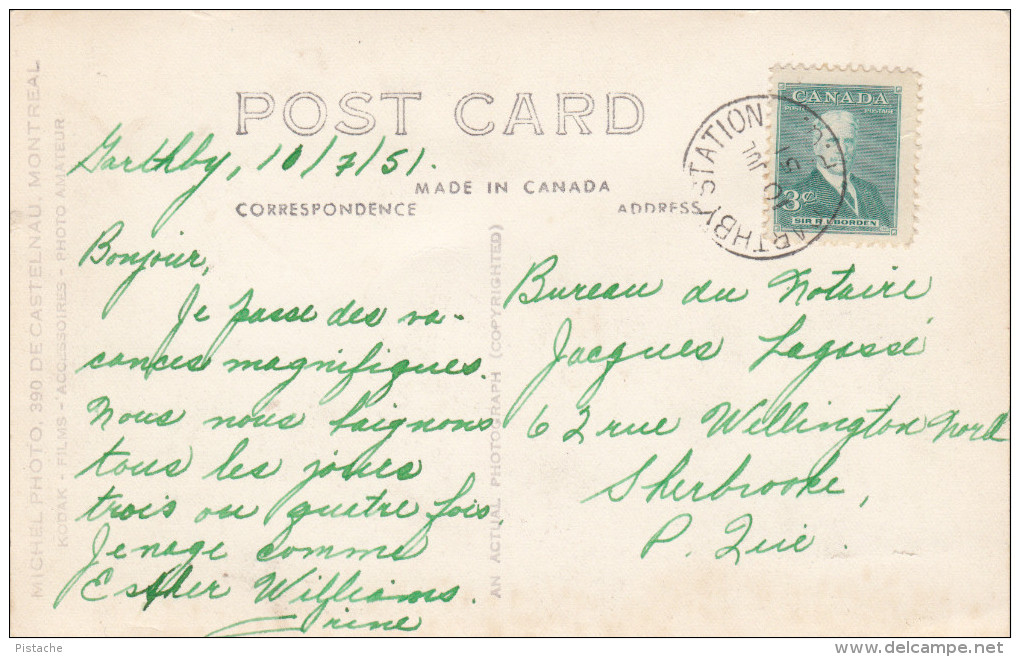 POST CARD
Garthby, 10/7/51.
MADE IN CANADA
CORRESPONDENCE
ADDRESS
Bonjour,
Je passe des va-
cances magnifiques.
Nous nous baignons
tous les jours
trois ou quatre fois.
Je nage comme
Esther Williams.
Bureau du Notaire
Jacques Lagassé
62 rue Wellington Nord
Sherbrooke,
P. Qué.
CANADA
POSTES POSTAGE
3¢
SIR R L BORDEN
GARTHBY STATION
P.Q.
10 JUL
51
MICHEL PHOTO, 390 DE CASTELNAU, MONTREAL
KODAK - FILMS - ACCESSOIRES - PHOTO AMATEUR
AN ACTUAL PHOTOGRAPH (COPYRIGHTED)
Pistache
http://www.delcampe.net